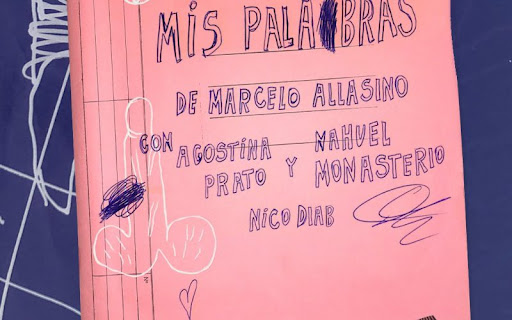 MIS PALABRAS
DE MARCELO ALLASINO
CON AGOSTÍNA PRATO Y NAHUEL MONASTERIO
NICO DIAB